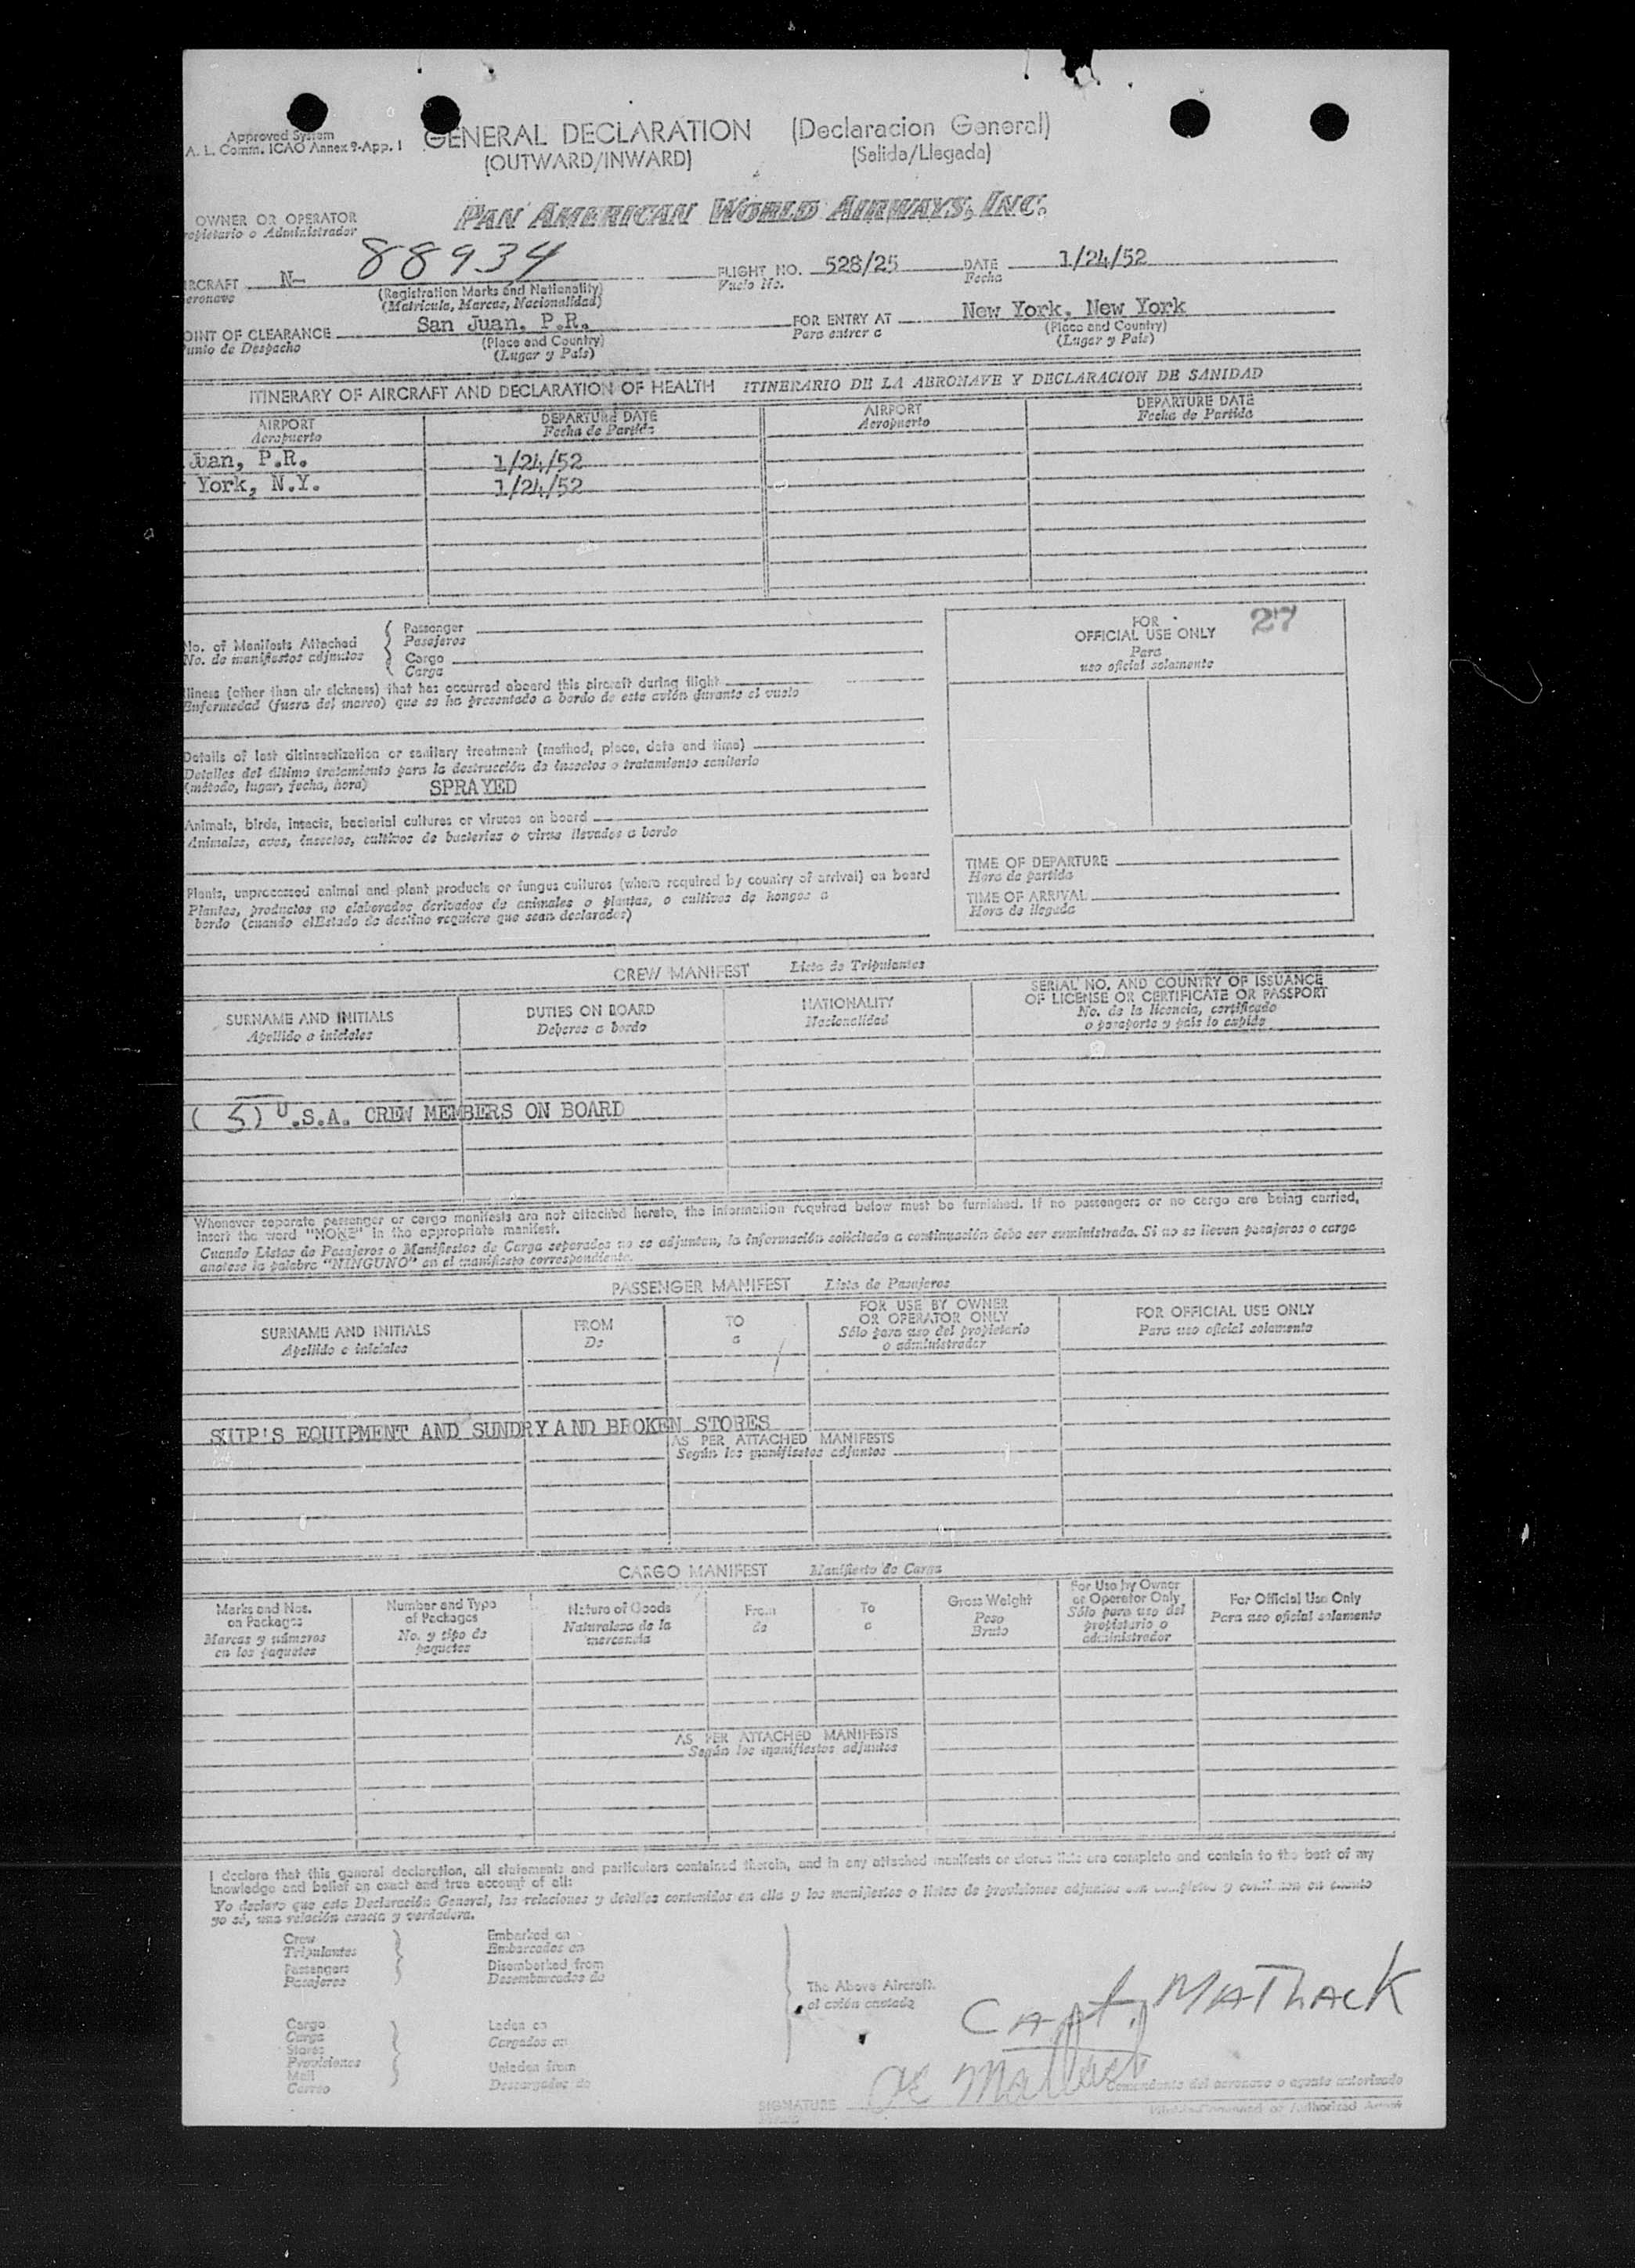 Approved System
A. L. Comm. ICAO Annex 9-App. 1
GENERAL DECLARATION (Declaracion General)
(OUTWARD/INWARD) (Salida/Llegada)
OWNER OR OPERATOR PAN AMERICAN WORLD AIRWAYS, INC.
opietario o Administrador
IRCRAFT N- 88934 FLIGHT NO. 528/25 DATE 1/24/52
eronave (Registration Marks and Nationality) Vuelo No. Fecha
(Matricula, Marcas, Nacionalidad)
OINT OF CLEARANCE San Juan, P.R. FOR ENTRY AT New York, New York
unto de Despacho (Place and Country) Para entrar a (Place and Country)
(Lugar y País) (Lugar y País)
ITINERARY OF AIRCRAFT AND DECLARATION OF HEALTH ITINERARIO DE LA AERONAVE Y DECLARACION DE SANIDAD
AIRPORT DEPARTURE DATE AIRPORT DEPARTURE DATE
Aeropuerto Fecha de Partida Aeropuerto Fecha de Partida
Juan, P.R. 1/24/52
York, N.Y. 1/24/52
No. of Manifests Attached Passenger
No. de manifiestos adjuntos Pasajeros
Cargo
Carga
FOR
OFFICIAL USE ONLY 27
Para
uso oficial solamente
llness (other than air sickness) that has occurred aboard this aircraft during flight
Enfermedad (fuera del mareo) que se ha presentado a bordo de este avión durante el vuelo
Details of last disinsectization or sanitary treatment (method, place, date and time)
Detalles del último tratamiento para la destrucción de insectos o tratamiento sanitario
(método, lugar, fecha, hora) SPRAYED
Animals, birds, insects, bacterial cultures or viruses on board
Animales, aves, insectos, cultivos de bacterias o virus llevados a bordo
Plants, unprocessed animal and plant products or fungus cultures (where required by country of arrival) on board
Plantas, productos no elaborados derivados de animales o plantas, o cultivos de hongos a
bordo (cuando elEstado de destino requiere que sean declarados)
TIME OF DEPARTURE
Hora de partida
TIME OF ARRIVAL
Hora de llegada
CREW MANIFEST Lista de Tripulantes
SURNAME AND INITIALS DUTIES ON BOARD NATIONALITY SERIAL NO. AND COUNTRY OF ISSUANCE
OF LICENSE OR CERTIFICATE OR PASSPORT
Apellido e iniciales Deberes a bordo Nacionalidad No. de la licencia, certificado
o pasaporte y país lo expide
(5) U.S.A. CREW MEMBERS ON BOARD
Whenever separate passenger or cargo manifests are not attached hereto, the information required below must be furnished. If no passengers or no cargo are being carried,
insert the word "NONE" in the appropriate manifest.
Cuando Listas de Pasajeros o Manifiestos de Carga separados no se adjuntan, la información solicitada a continuación debe ser suministrada. Si no se llevan pasajeros o carga
anotese la palabra "NINGUNO" en el manifiesto correspondiente.
PASSENGER MANIFEST Lista de Pasajeros
SURNAME AND INITIALS FROM TO FOR USE BY OWNER FOR OFFICIAL USE ONLY
OR OPERATOR ONLY
Apellido e iniciales De a Sólo para uso del propietario Para uso oficial solamente
o administrador
SHIP'S EQUIPMENT AND SUNDRY AND BROKEN STORES
AS PER ATTACHED MANIFESTS
Según los manifiestos adjuntos
CARGO MANIFEST Manifiesto de Carga
Marks and Nos. Number and Type Nature of Goods From To Gross Weight For Use by Owner For Official Use Only
on Packages of Packages or Operator Only
Marcas y números No. y tipo de Naturaleza de la de a Peso Sólo para uso del Para uso oficial solamente
en los paquetes paquetes mercancia Bruto propietario o
administrador
AS PER ATTACHED MANIFESTS
Según los manifiestos adjuntos
I declare that this general declaration, all statements and particulars contained therein, and in any attached manifests or stores lists are complete and contain to the best of my
knowledge and belief an exact and true account of all:
Yo declaro que esta Declaración General, las relaciones y detalles contenidos en ella y los manifiestos o listas de provisiones adjuntos son completos y contienen en cuanto
yo sé, una relación exacta y verdadera.
Crew Embarked on
Tripulantes Embarcados en
Passengers Disembarked from
Pasajeros Desembarcados de
The Above Aircraft.
el avión
Capt. MATLACK
Cargo Laden on
Carga Cargados en
Stores
Provisiones
Mail Unladen from
Correo Descargados de
Comandante del aeronave o agente autorizado
SIGNATURE